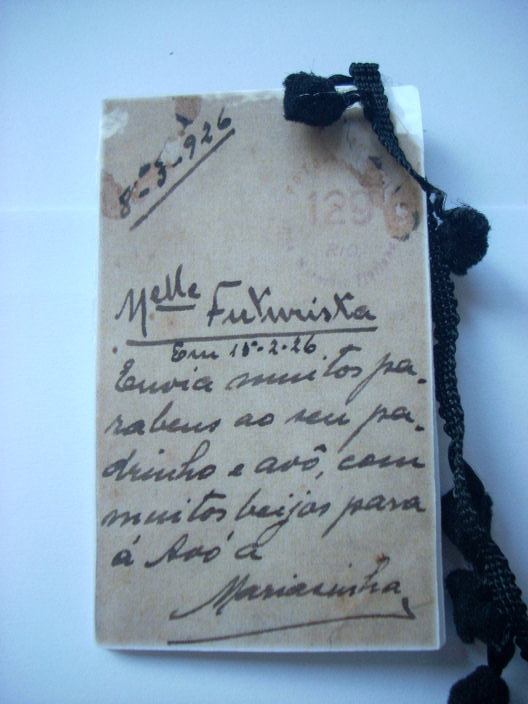 8-3-926
129
RIO
Melle Futurista
Em 15-2-26.
Envia muitos pa-
rabens ao seu pa-
drinho e avô, com
muitos beijos para
á Avó a
Mariasinha